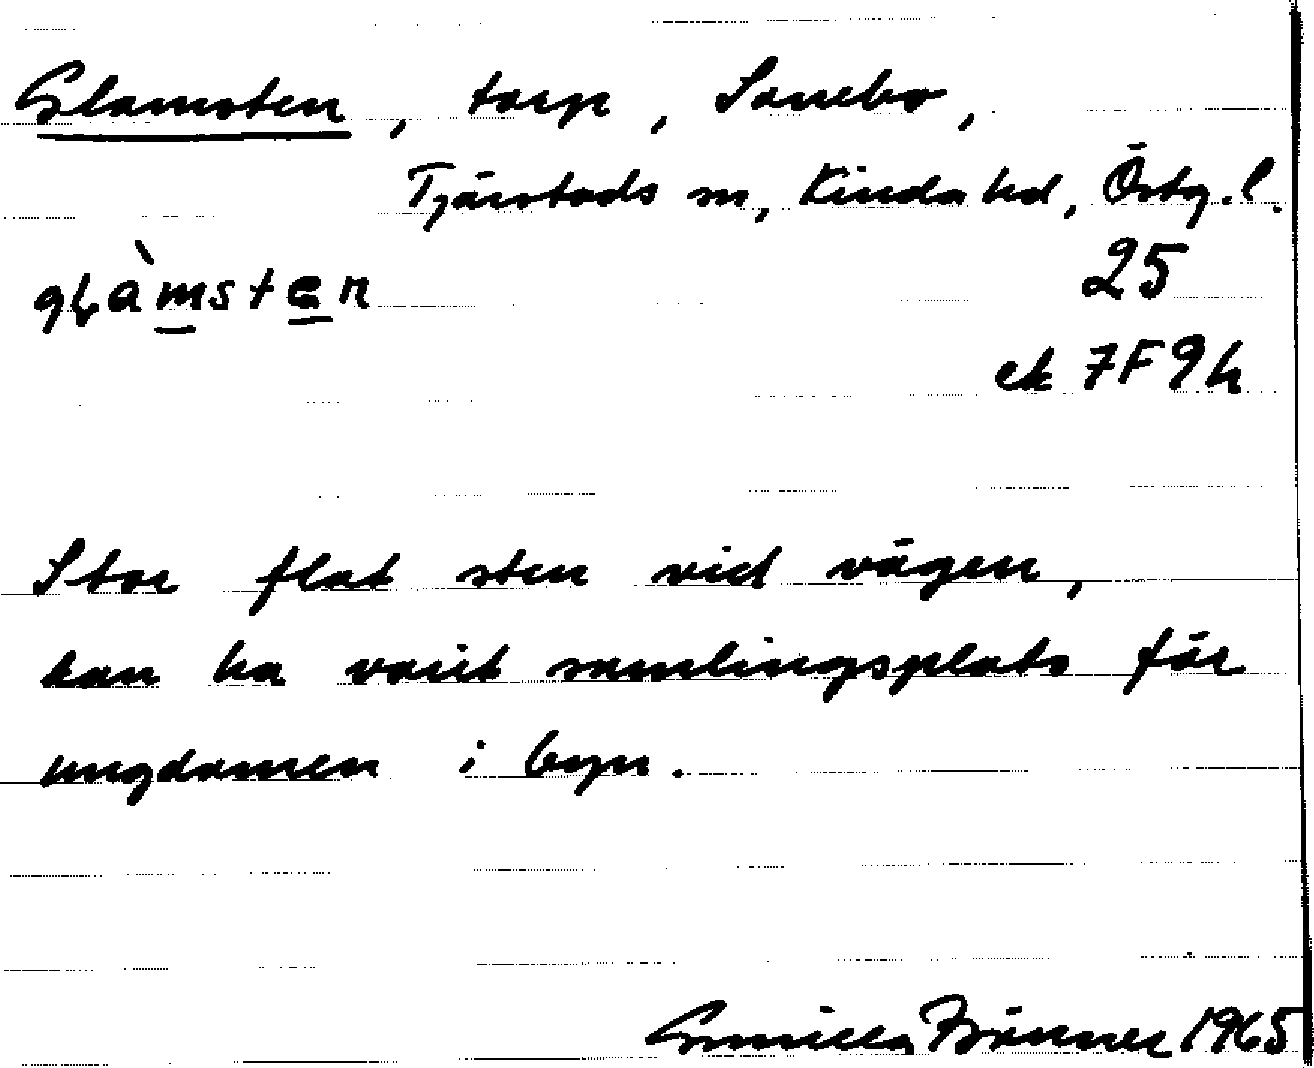 Glamsten, torp, Sonebo,
Tjärstads sn, Kinda hd, Östg. l.
glàmsten 25
ek 7F9h
Stor flat sten vid vägen,
kan ha varit samlingsplats för
ungdomen i byn.
Gunilla 1965